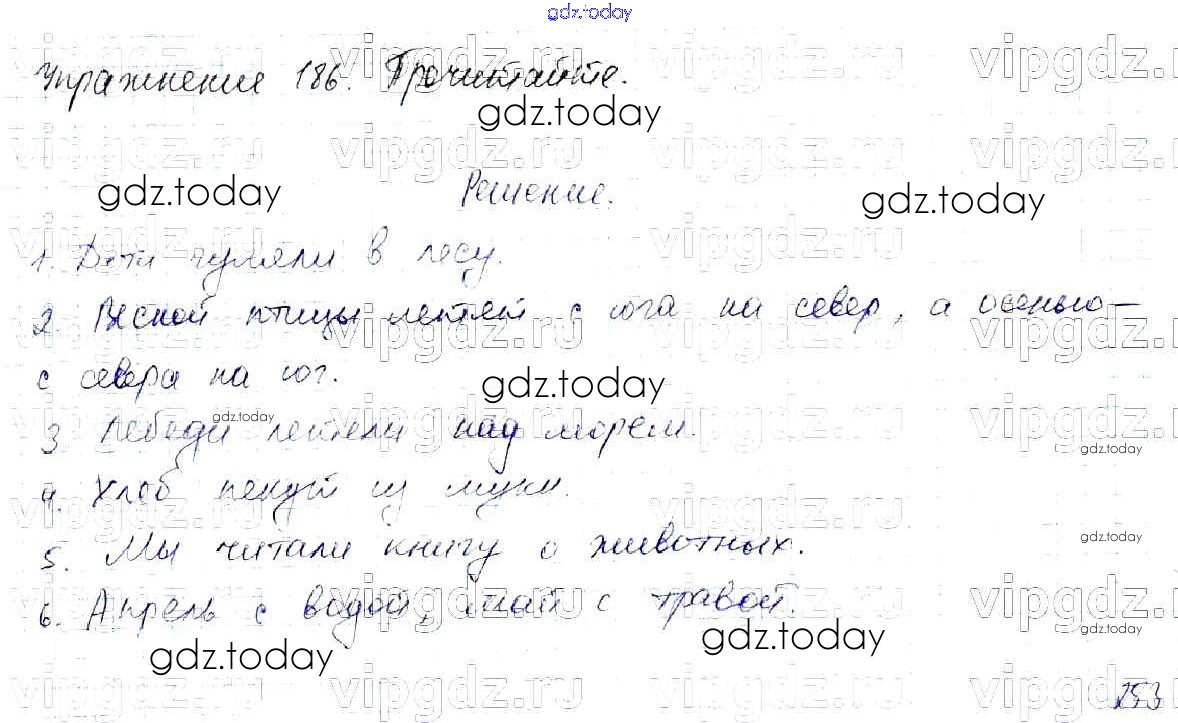 gdz.today
Упражнение 186. Прочитайте.
gdz.today
gdz.today Решение. gdz.today
1. Дети гуляли в лесу.
2. Весной птицы летят с юга на север, а осенью –
с севера на юг.
gdz.today
gdz.today
3. Лебеди летели над морем.
gdz.today
4. Хлеб пекут из муки.
5. Мы читали книгу о животных.
gdz.today
6. Апрель с водой, май с травой.
gdz.today
gdz.today
gdz.today
253
vipgdz.ru